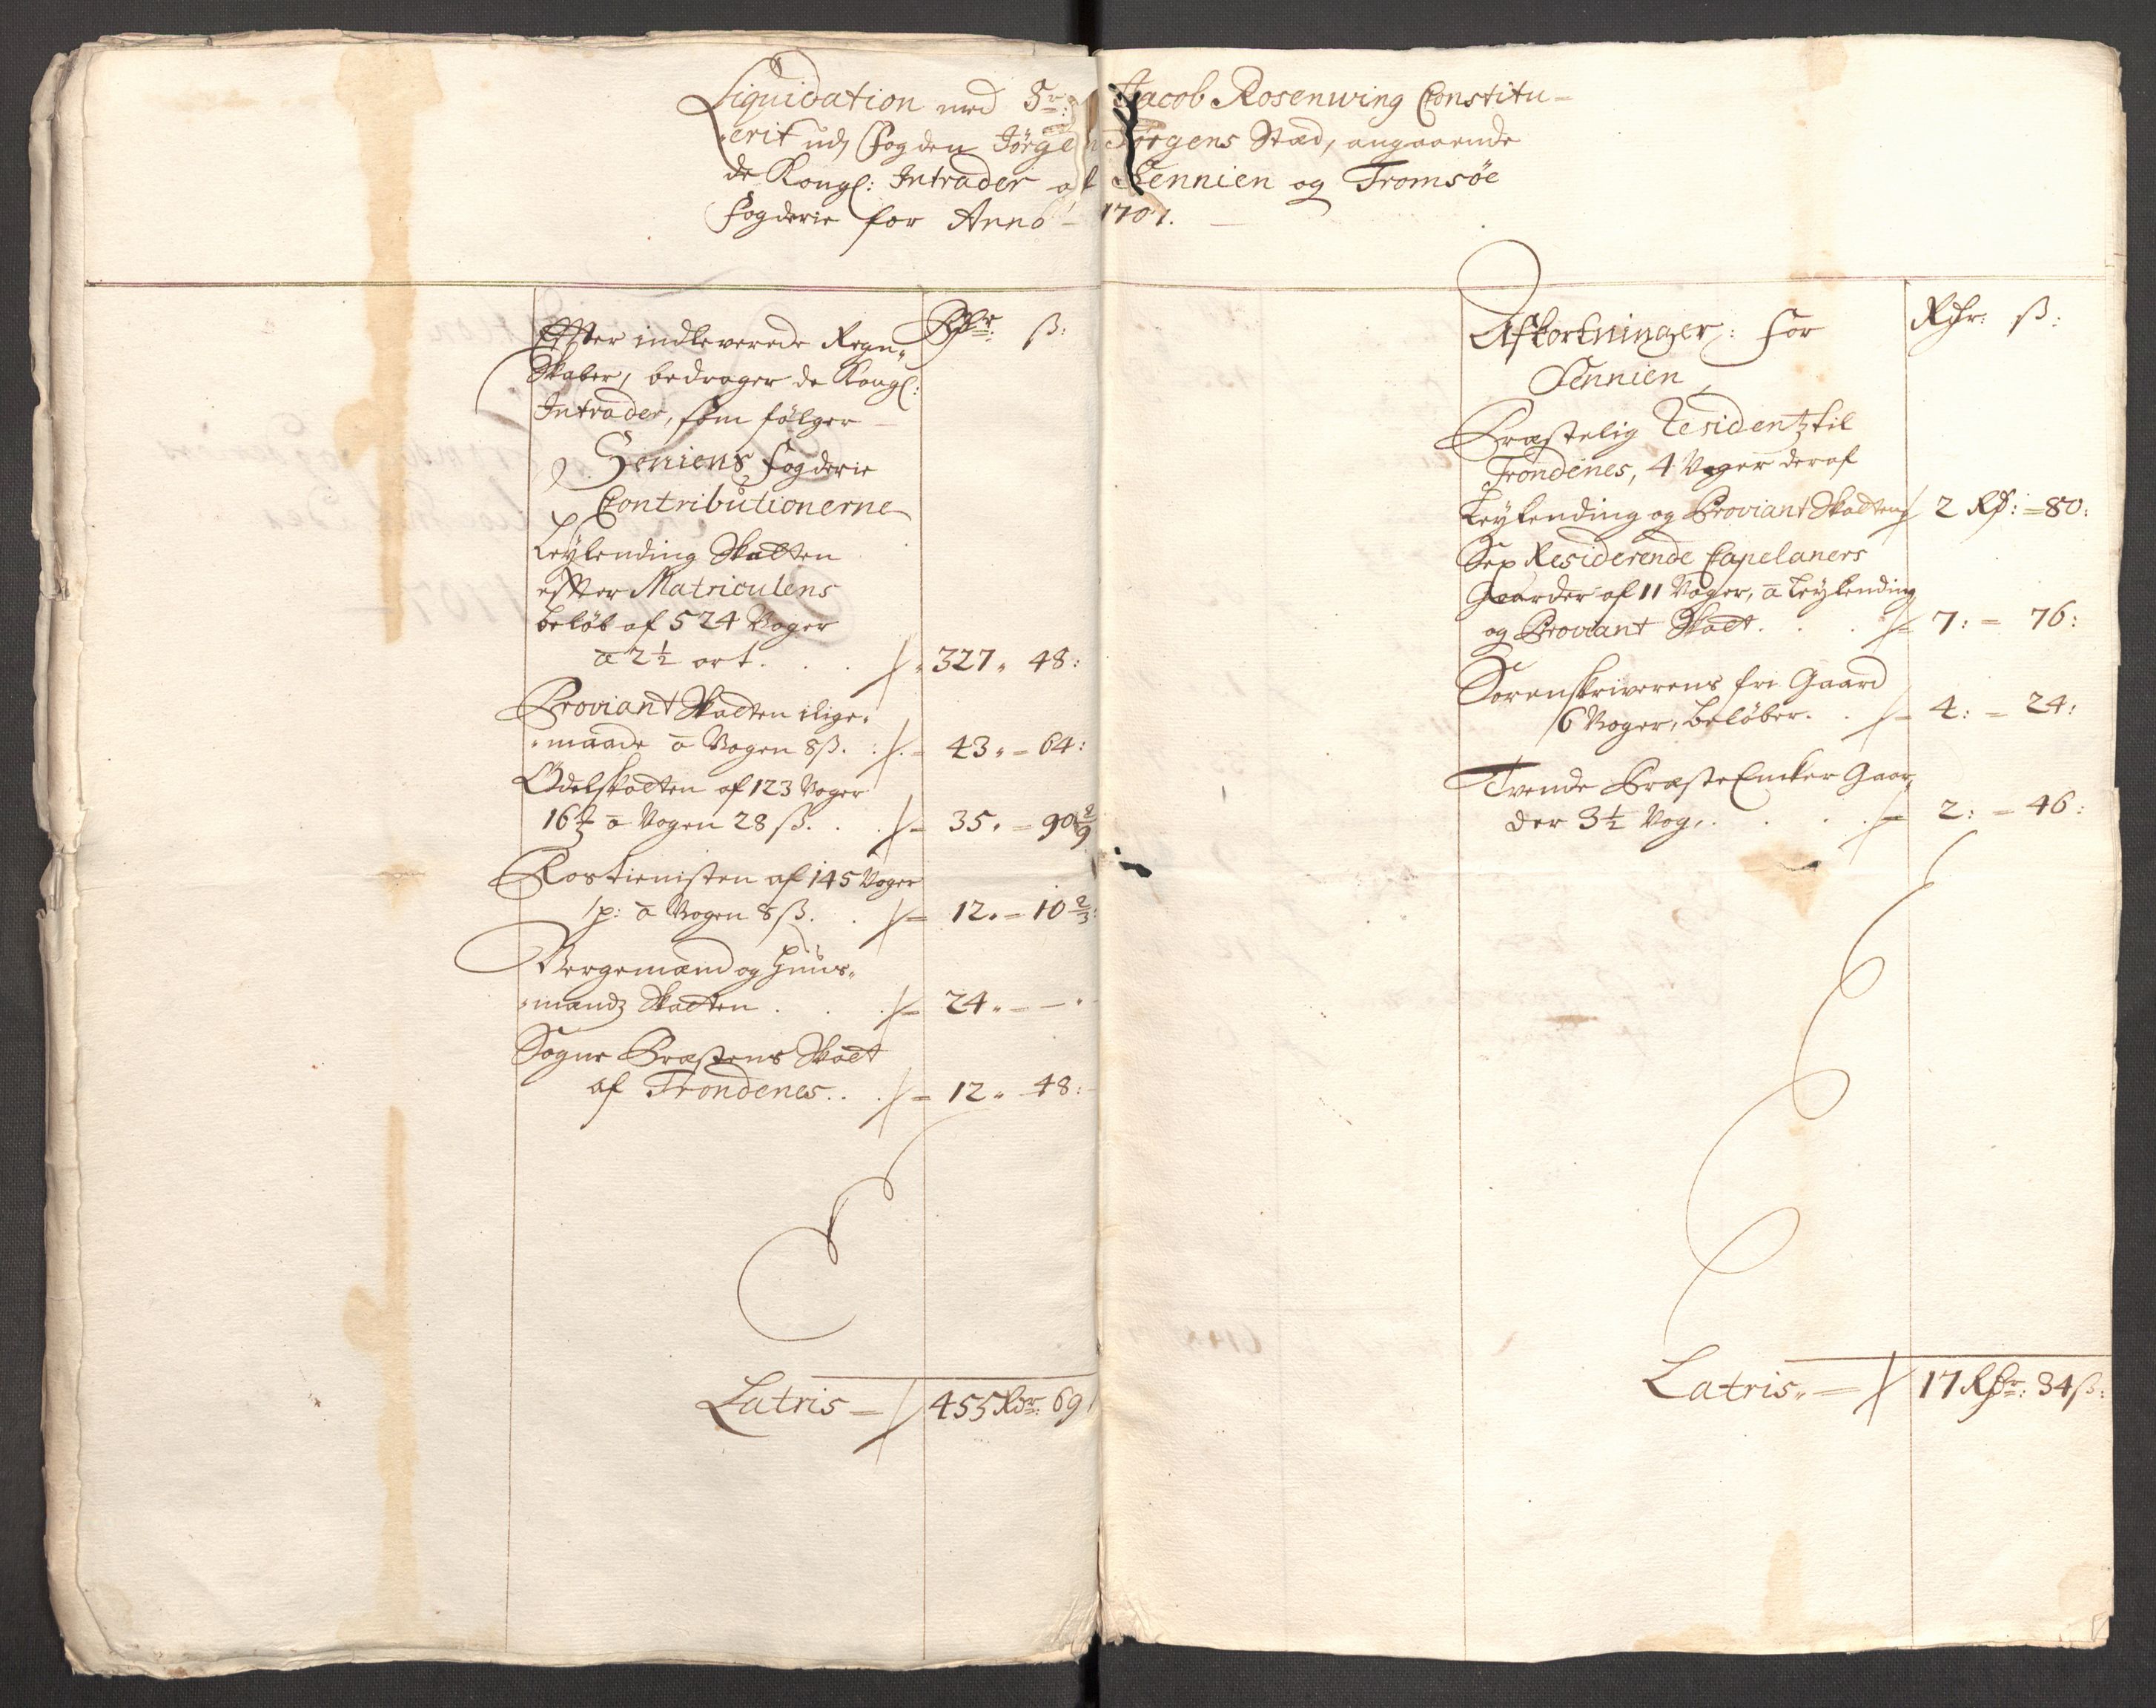 Liquidation med Sr: Jacob Rosenwing Constitu-
erit udj Fogden Jørgen Jørgens Stæd, angaaende
de Kongl: Intrader af Sennien og Tromsøe
Fogderie for Anno 1701.
Effter indleverede Regn-
skaber, bedrager de Kongl:
Intrader, som følger
Rdr: ß:
Seniens Fogderie
Contributionerne
Leylending Skatten
effter Matriculens
beløb af 524 Voger
a 2½ ort . . . 327 " 48:
Proviant Skatten i lige-
maade a Vogen 8 ß. : 43 " 64:
Odelskatten af 123 Voger
16 a Vogen 28 ß. . . 35 " 90 2/9
Rostienisten af 145 Voger
1 p: a Vogen 8 ß. . 12 " 10 2/3:
Borgemænd og Huus-
mandz Skatten . . . 24 " — "
Sogne Præstens Skatt
af Trondenes . . . 12 " 48:
Latris 455 Rdr: 69
Afkortninger: for
Sennien
Rdr: ß:
Præstelig Residentz til
Trondenes, 4 Voger deraf
Leylending og Proviant Skatten 2 Rd: 80:
Sex Residerende Capelaners
Gaarder af 11 Voger, a Leylending
og Proviant Skatt . . . 7: 76:
Sorenskriverens fri Gaard
6 Voger, beløber . . 4: 24:
Tvende Præste Encker Gaar-
der 3½ Vog, . . . 2: 46:
Latris 17 Rdr: 34 ß: